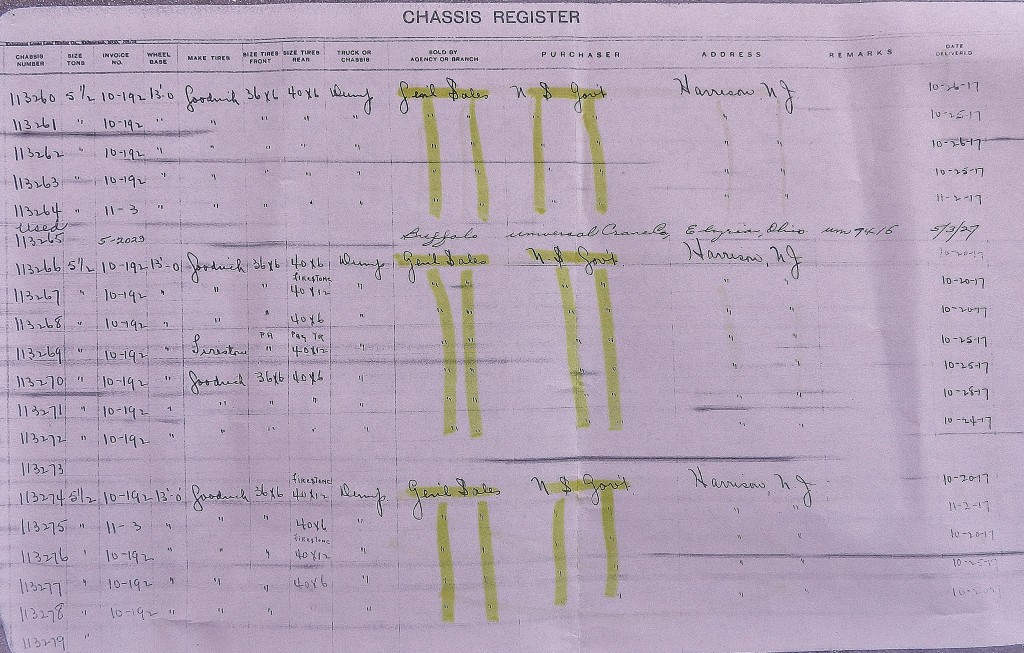 CHASSIS REGISTER
CHASSIS NUMBER SIZE TONS INVOICE NO. WHEEL BASE MAKE TIRES SIZE TIRES FRONT SIZE TIRES REAR TRUCK OR CHASSIS SOLD BY AGENCY OR BRANCH PURCHASER ADDRESS REMARKS DATE DELIVERED
113260 5 1/2 10-192 13'-0 Goodrich 36x6 40x6 Dump Gen'l Sales U S Gov't Harrison, N J 10-26-17
113261 " 10-192 " " " " " " " " " " " 10-25-17
113262 " 10-192 " " " " " " " " " " " 10-26-17
113263 " 10-192 " " " " " " " " " " " 10-25-17
113264 " 11-3 " " " " " " " " " " " 11-2-17
Used
113265 5-2023 Buffalo Universal Crane Co, Elyria, Ohio 5/3/27
113266 5 1/2 10-192 13'-0 Goodrich 36x6 40x6 Dump Gen'l Sales U S Gov't Harrison, N J 10-20-17
Firestone
113267 " 10-192 " " " 40x12 " " " " " " " 10-20-17
113268 " 10-192 " " " 40x6 " " " " " " " 10-20-17
113269 " 10-192 " Firestone " 40x12 " " " " " " " 10-25-17
113270 " 10-192 " Goodrich 36x6 40x6 " " " " " " " 10-25-17
113271 " 10-192 " " " " " " " " " " " 10-25-17
113272 " 10-192 " " " " " " " " " " " 10-24-17
113273
Firestone
113274 5 1/2 10-192 13'-0 Goodrich 36x6 40x12 Dump Gen'l Sales U S Gov't Harrison, N J 10-20-17
113275 " 11-3 " " " 40x6 " " " " " " " 11-2-17
Firestone
113276 " 10-192 " " " 40x12 " " " " " " " 10-20-17
113277 " 10-192 " " " 40x6 " " " " " " " 10-25-17
113278 " 10-192 " " " " " " " " " " "
113279 "